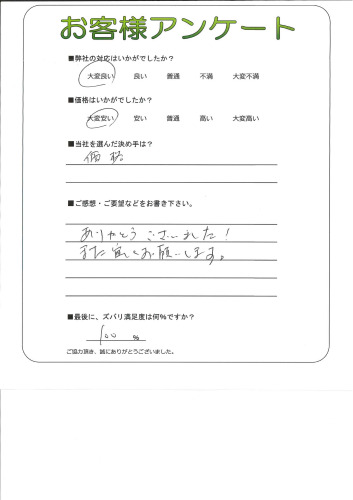 お客様アンケート
■弊社の対応はいかがでしたか?
大変良い 良い 普通 不満 大変不満
■価格はいかがでしたか?
大変安い 安い 普通 高い 大変高い
■当社を選んだ決め手は?
価格
■ご感想・ご要望などをお書き下さい。
ありがとうございました!
また宜しくお願いします。
■最後に、ズバリ満足度は何%ですか?
100 %
ご協力頂き、誠にありがとうございました。